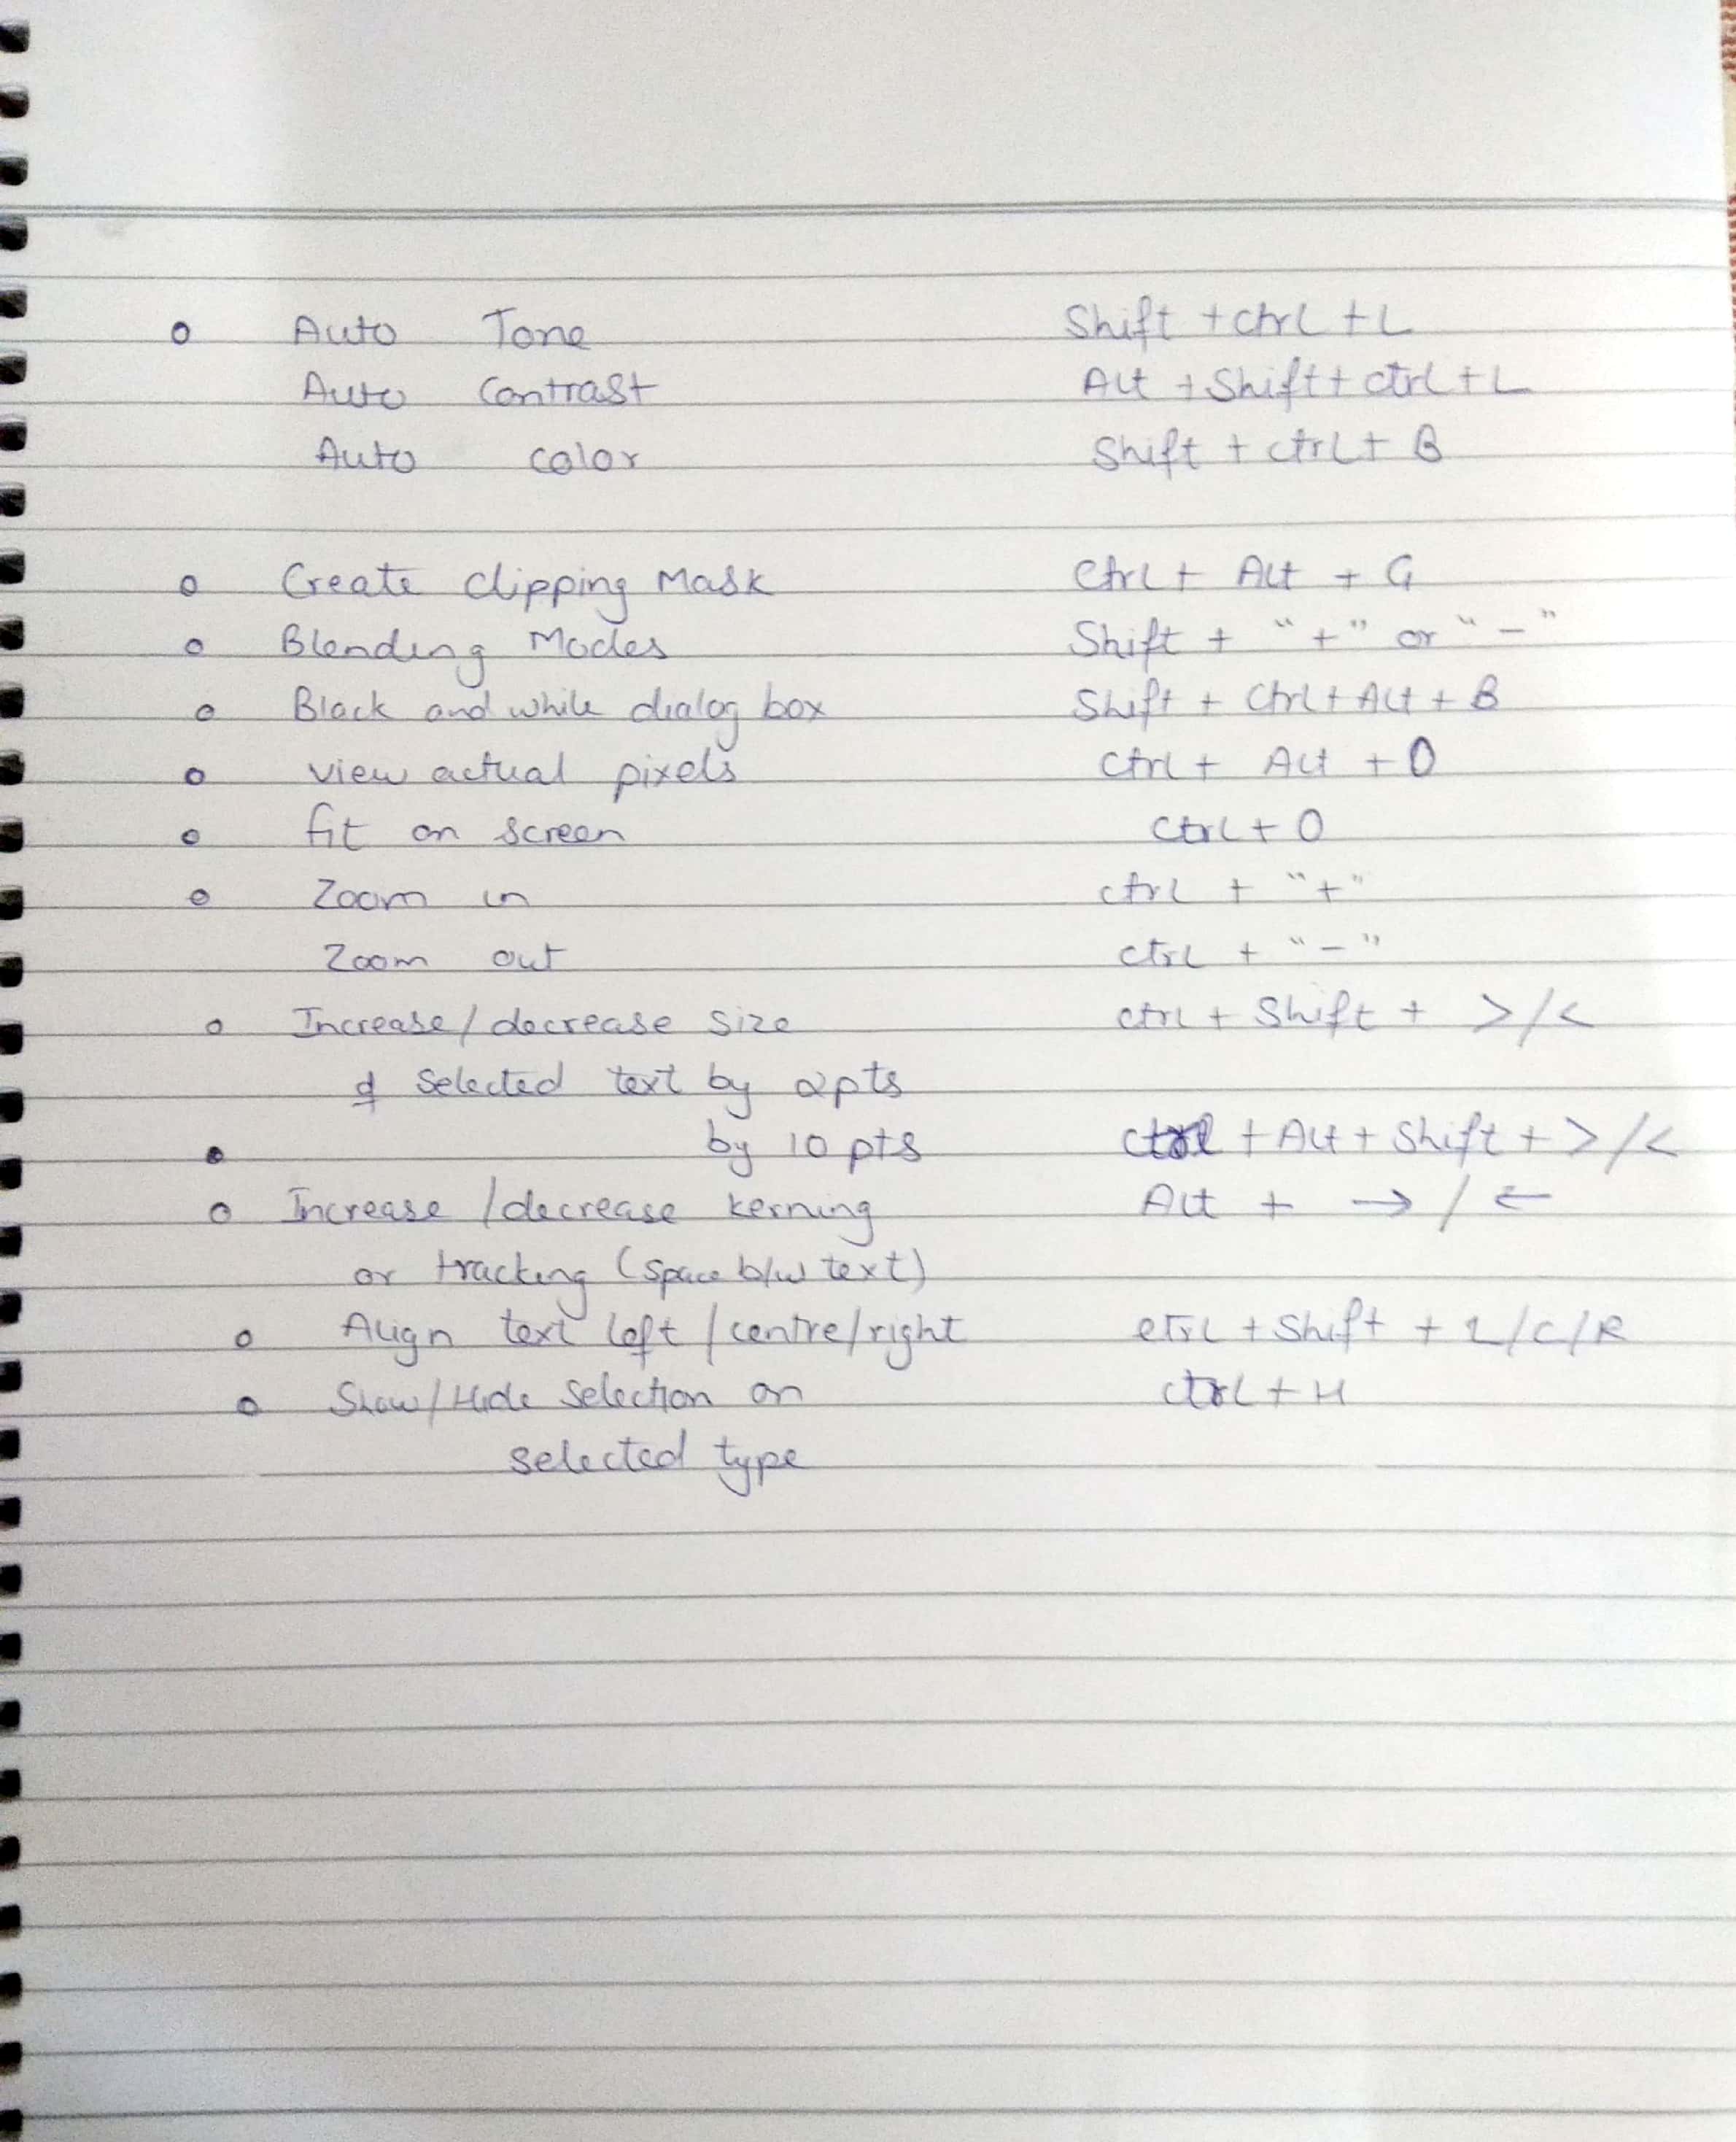 o Auto Tone Shift + Ctrl + L
Auto Contrast Alt + Shift + Ctrl + L
Auto color Shift + Ctrl + B
o Create clipping Mask Ctrl + Alt + G
o Blending Modes Shift + "+" or "-"
o Black and while dialog box Shift + Ctrl + Alt + B
o view actual pixels Ctrl + Alt + 0
o fit on screen Ctrl + 0
o Zoom in ctrl + "+"
Zoom out ctrl + "-"
o Increase/decrease size ctrl + Shift + >/<
of selected text by 2pts
• by 10 pts ctrl + Alt + Shift + >/<
o Increase/decrease kerning Alt + →/←
or tracking (space b/w text)
o Align text left/centre/right ctrl + Shift + L/C/R
o Show/Hide Selection on ctrl + H
selected type